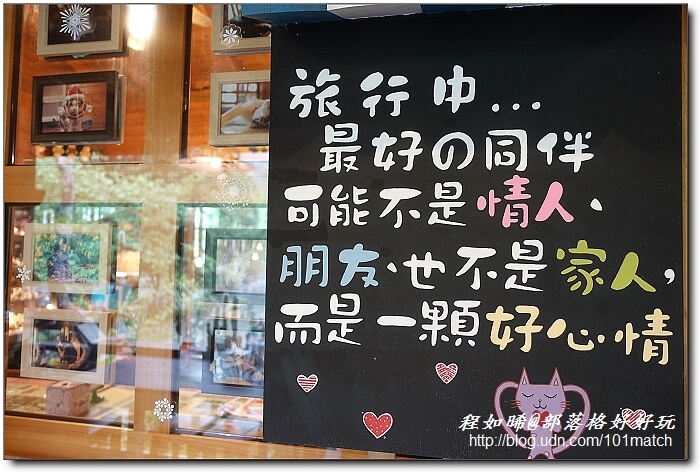 旅行中...
最好の同伴
可能不是情人、
朋友、也不是家人，
而是一顆好心情
程如晞@部落格好好玩
http://blog.udn.com/101match